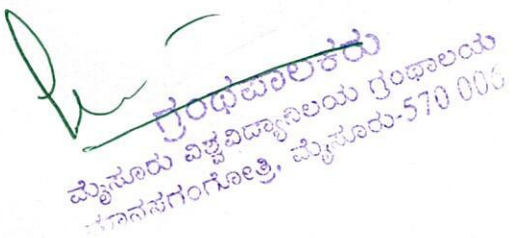 ಗ್ರಂಥಪಾಲಕರು
ಮೈಸೂರು ವಿಶ್ವವಿದ್ಯಾನಿಲಯ ಗ್ರಂಥಾಲಯ
ಮಾನಸಗಂಗೋತ್ರಿ, ಮೈಸೂರು-570 006